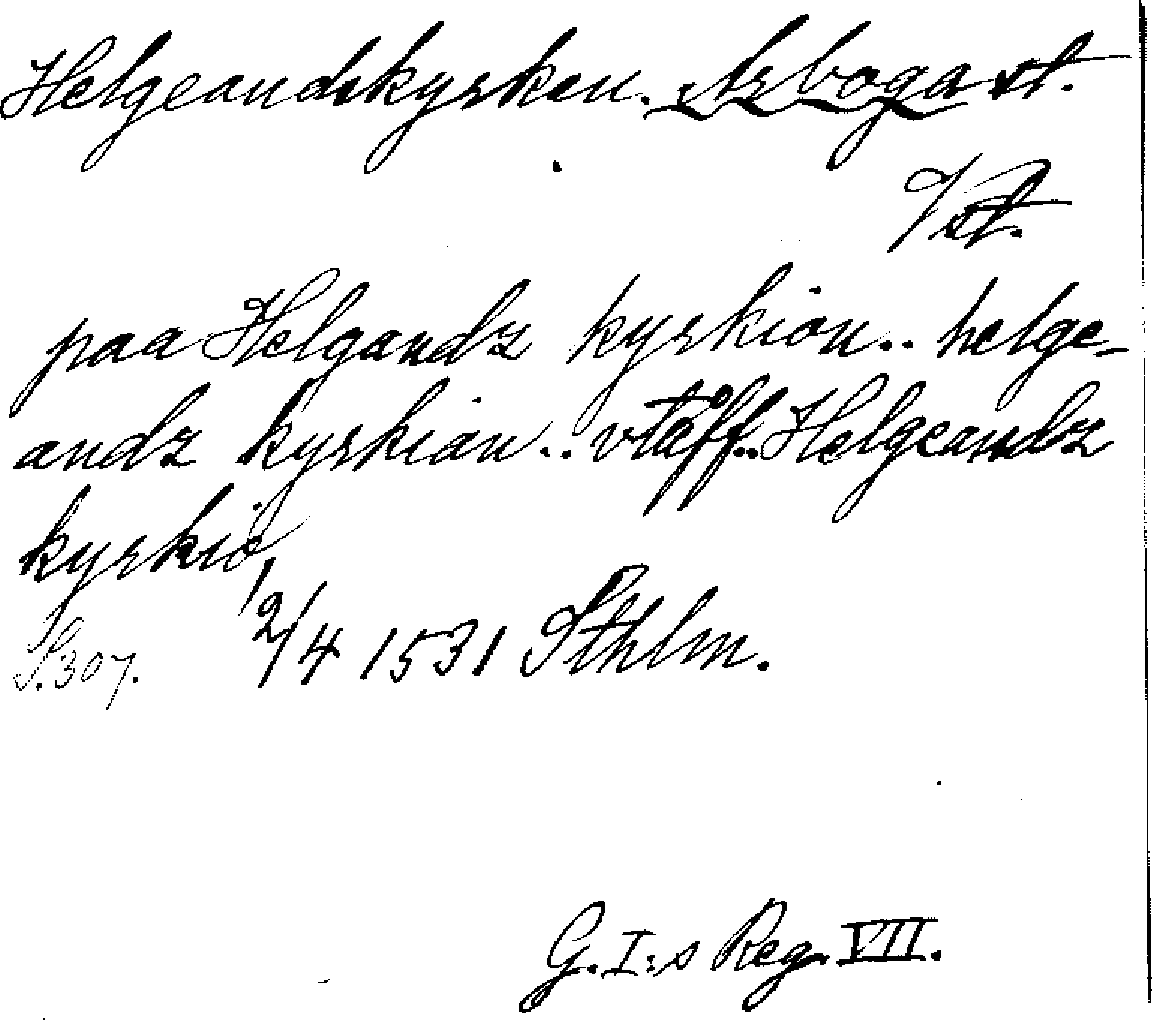 Helgeandskyrkan. Arboga st.
Vst.
paa Helgandz kyrkion.. helge-
andz kyrkian.. vtåff.. Helgeandz
kyrkio
S. 307. 2/4 1531 Sthlm.
G. I:s Reg. VII.